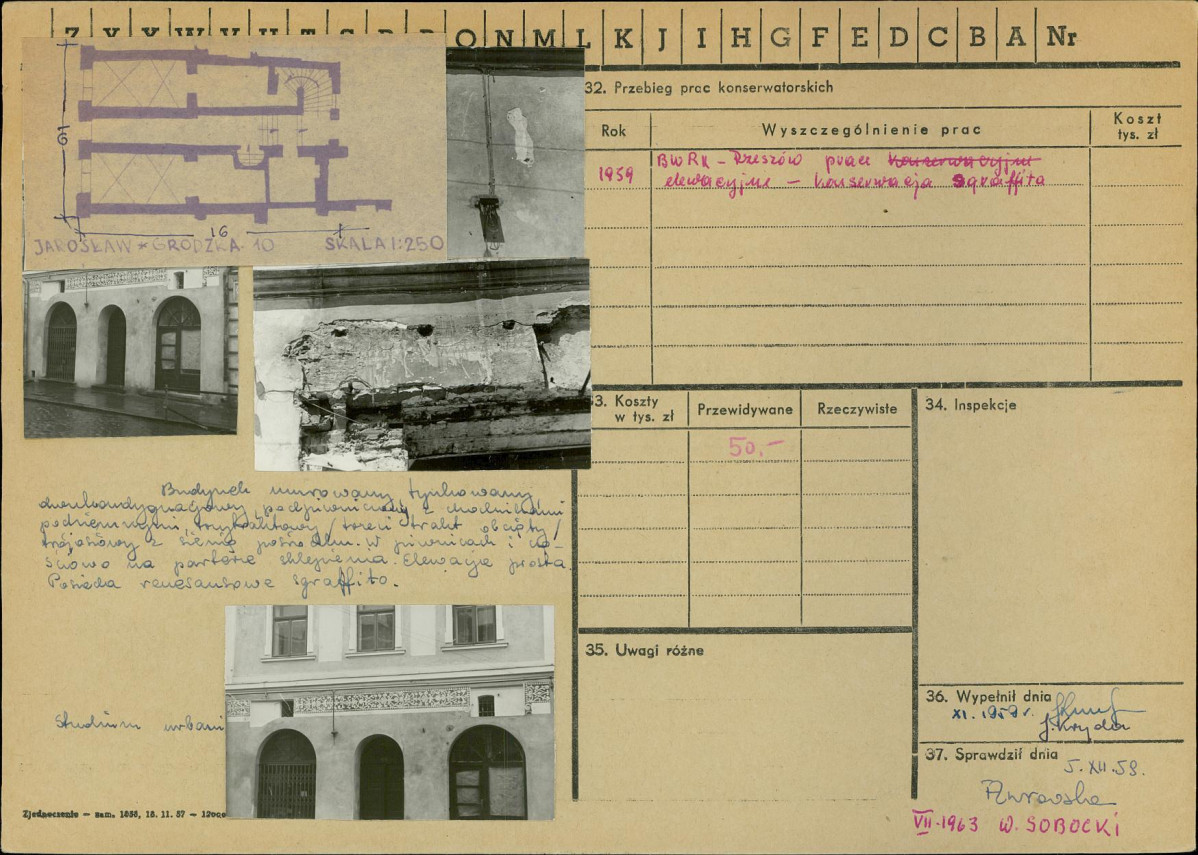 Z Y X W V U T S R P O N M L K J I H G F E D C B A Nr
19
16
JAROSŁAW * GRODZKA 10 SKALA 1:250
Budynek murowany, tynkowany,
dwukondygnacyjny, podpiwniczony z chodnikami
podziemnymi, trzytraktowy /trzeci trakt obcięty/
trójosiowy z sienią pośrodku. W piwnicach i czę-
ściowo na parterze sklepienia. Elewacja prosta
Posiada renesansowe sgraffito.
Studium urbani
Zjednoczenie — zam. 1858, 18. 11. 57 — 12000
32. Przebieg prac konserwatorskich
Rok Wyszczególnienie prac Koszt tys. zł
1959 BWRK - Rzeszów prace konserwacyjne
elewacyjne - konserwacja sgraffita
33. Koszty w tys. zł Przewidywane Rzeczywiste
50.-
34. Inspekcje
35. Uwagi różne
36. Wypełnił dnia
XI. 1959 r.
J. Kryda
37. Sprawdził dnia
5. XII. 59.
VII-1963 W. SOBOCKI